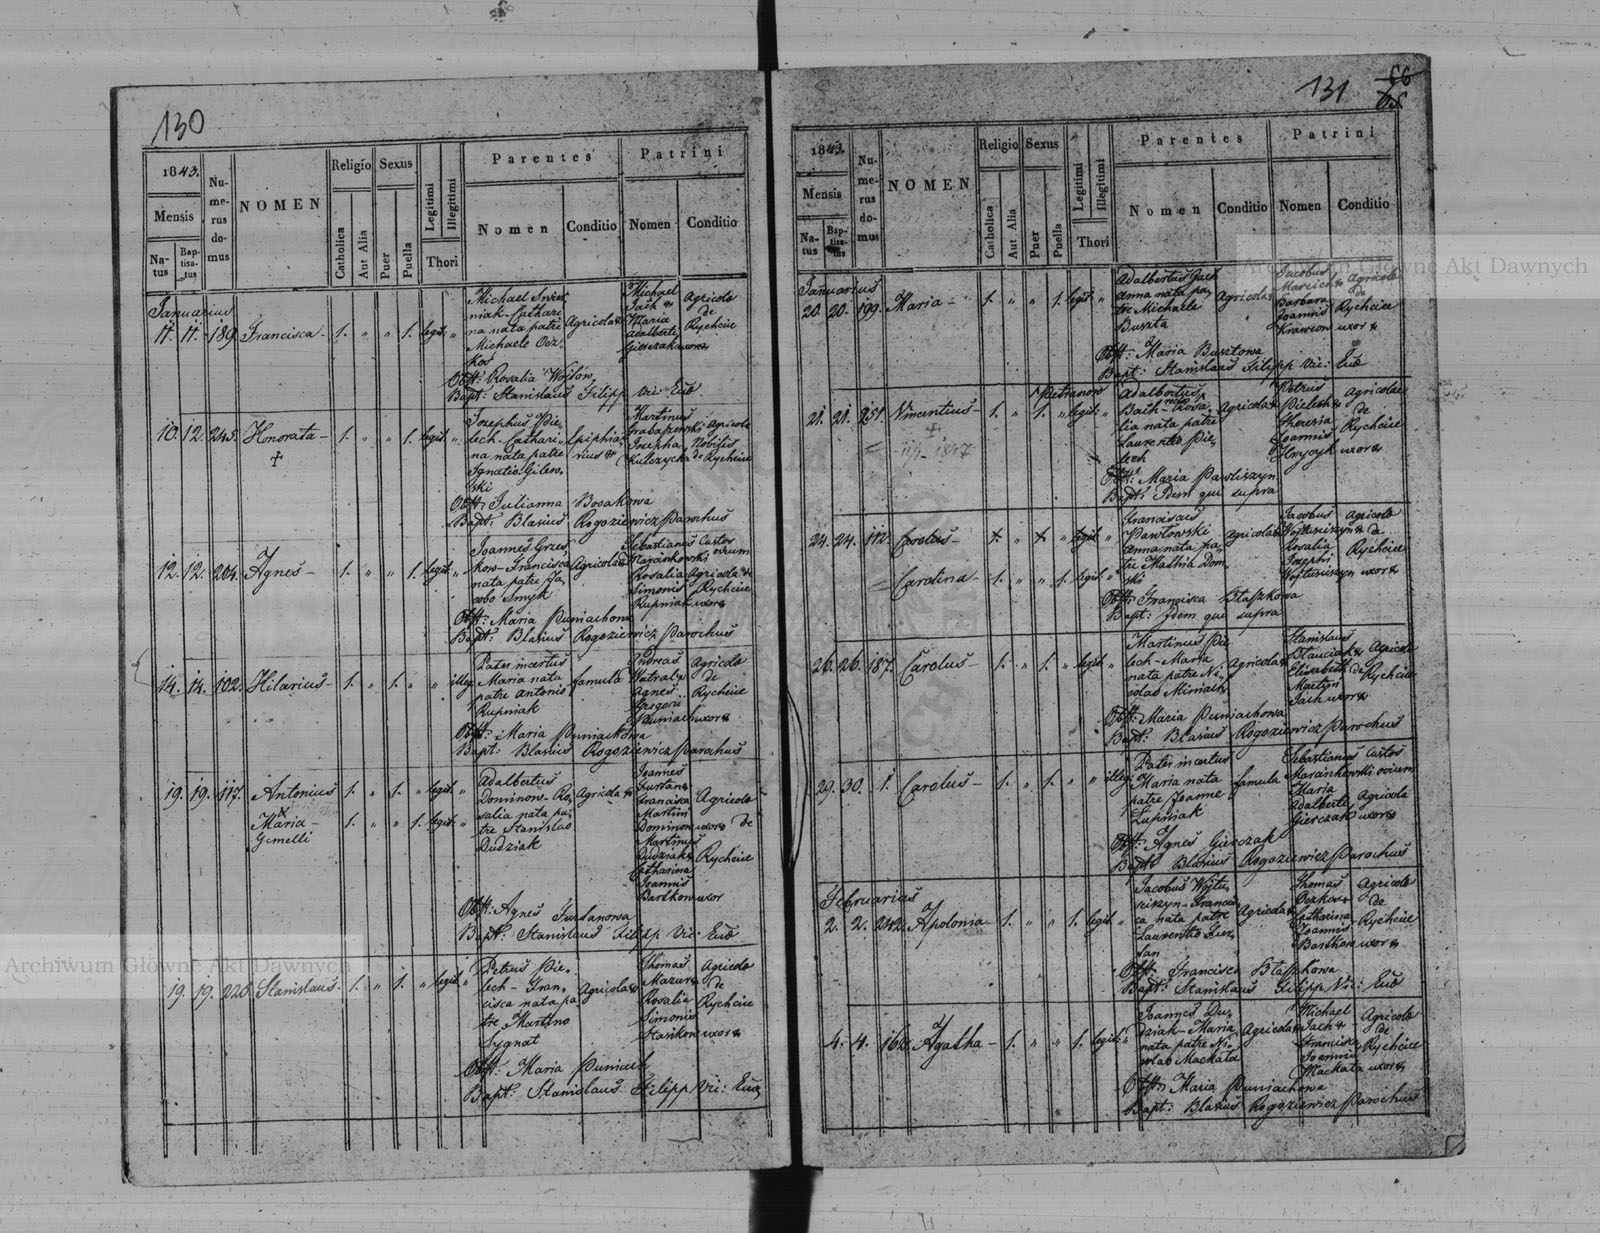 130
1843.
Mensis
Natus
Baptisatus
Numerus domus
NOMEN
Religio
Catholica
Aut Alia
Sexus
Puer
Puella
Legitimi
Illegitimi
Thori
Parentes
Nomen
Conditio
Patrini
Nomen
Conditio
Januarius
11. 11. 189. Francisca - 1. " " 1. legit. "
niak - Cathari
na nata patre
Michaele
Agricola
Michael
Jach
Maria
Adalberti
Gierczak uxor
Agricola
de
Rychcice
Obst: Rosalia
Bapt: Stanislaus Filipp Vic: Exc
10. 12. 245. Honorata - 1. " " 1. legit. "
Josephus Bie
lech - Cathari
na nata patre
Ignatio Gilew
ski
Martinus
Grabaszewski
Josepha
Kulczycka
Agricola
Nobilis
de Rychcice
Obst: Julianna Bosakowa
Bapt: Blasius Rogoziewicz Parochus
12. 12. 204. Agnes - 1. " " 1. legit. "
Joannes Grzes
kow - Francisca
nata patre Ja
cobo Smyk
Agricola
Sebastianus
Marcinkowski
Rosalia
Simonis
Rupniak uxor
Custos
ovium
Agricola de
Rychcice
Obst: Maria Puniachowa
Bapt: Blasius Rogoziewicz Parochus
14. 14. 102. Hilarius - 1. " 1. " " illeg.
Pater incertus
Maria nata
patre Antonio
Rupniak
famula
Andreas
Watral
Agnes
Gregorii
Puniach uxor
Agricola
de
Rychcice
Obst: Maria Puniachowa
Bapt: Blasius Rogoziewicz Parochus
19. 19. 117. Antonius 1. " 1. " legit. "
et
Maria - 1. " " 1. legit. "
Gemelli
Adalbertus
Dominow - Ro
salia nata pa
tre Stanislao
Dudziak
Agricola
Joannes
Furtan
Francisca
Martini
Dominow uxor
Martinus
Dudziak
Catharina
Joannis
Bartkow uxor
Agricola
de
Rychcice
Obst: Agnes Furtanowa
Bapt: Stanislaus Filipp Vic: Exc
19. 19. 226. Stanislaus - 1. " 1. " legit. "
Petrus Bie
lech - Fran
cisca nata pa
tre Martino
Sygnat
Agricola
Thomas
Mazur
Rosalia
Simonis
Stasikow uxor
Agricola
de
Rychcice
Obst: Maria Puniach
Bapt: Stanislaus Filipp Vic: Exc
131
66
1843.
Mensis
Natus
Baptisatus
Numerus domus
NOMEN
Religio
Catholica
Aut Alia
Sexus
Puer
Puella
Legitimi
Illegitimi
Thori
Parentes
Nomen
Conditio
Patrini
Nomen
Conditio
Januarius
20. 20. 199. Maria - 1. " " 1. legit. "
Adalbertus Jach
Anna nata pa
tre Michaele
Buszta
Agricola
Jacobus
Barbara
Joannis
Krawczon uxor
Agricola
de
Rychcice
Obst: Maria Busztowa
Bapt: Stanislaus Filipp Vic: Exc
21. 21. 251. Vincentius - 1. " 1. " legit. "
Adalbertus
Bach - Rosa
lia nata patre
Laurentio Bie
lech
Agricola
Petrus
Bielech
Theresia
Joannis
Hrycyk uxor
Agricola
de
Rychcice
Obst: Maria Pawliszyn
Bapt: Idem qui supra
24. 24. 112. Carolus - 1. " 1. " legit. "
Carolina - 1. " " 1. legit. "
Franciscus
Pawlowski
Anna nata pa
tre Mathia Dom
ski
Agricola
Jacobus
Wojtuszyn
Rosalia
Josephi
Wojtuszyn uxor
Agricola
de
Rychcice
Obst: Francisca Blaszkowa
Bapt: Idem qui supra
26. 26. 187. Carolus - 1. " 1. " legit. "
Martinus Bie
lech - Maria
nata patre Ni
colao Miniach
Agricola
Stanislaus
Blauciak
Elisabeth
Martini
Jach uxor
Agricola
de Rychcice
Obst: Maria Puniachowa
Bapt: Blasius Rogoziewicz Parochus
29. 30. 1. Carolus - 1. " 1. " " illeg:
Pater incertus
Maria nata
patre Joanne
Lupniak
famula
Sebastianus
Marcinkowski
Maria
Adalberti
Gierczak uxor
Custos
ovium
Agricola
Rychcice
Obst: Agnes Gierczak
Bapt: Blasius Rogoziewicz Parochus
Februarius
2. 2. 242. Apolonia - 1. " " 1. legit. "
Jacobus Wojtu
siszyn - Francis
ca nata patre
Laurentio Fur
tan
Agricola
Thomas
Oczkow
Catharina
Joannis
Bartkow uxor
Agricola
de
Rychcice
Obst: Francisca Blaszkowa
Bapt: Stanislaus Filipp Vic: Exc
4. 4. 162. Agatha - 1. " " 1. legit: "
Joannes Du
dziak - Maria
nata patre Ni
colao Mackata
Agricola
Michael
Jach
Francisca
Joannis
Mackata uxor
Agricola
de
Rychcice
Obst: Maria Puniachowa
Bapt: Blasius Rogoziewicz Parochus
Archiwum Główne Akt Dawnych
Archiwum Główne Akt Dawnych